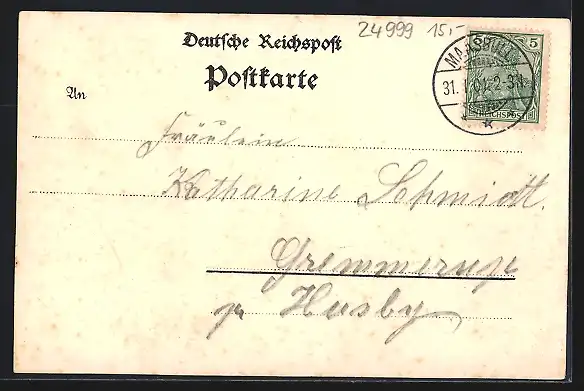 24999 15,-
Deutsche Reichspost
Postkarte
5 5
REICHSPOST
31. 01. 2-3N.
An
Fräulein
Katharine Schmidt.
Gremmerup
pr Husby